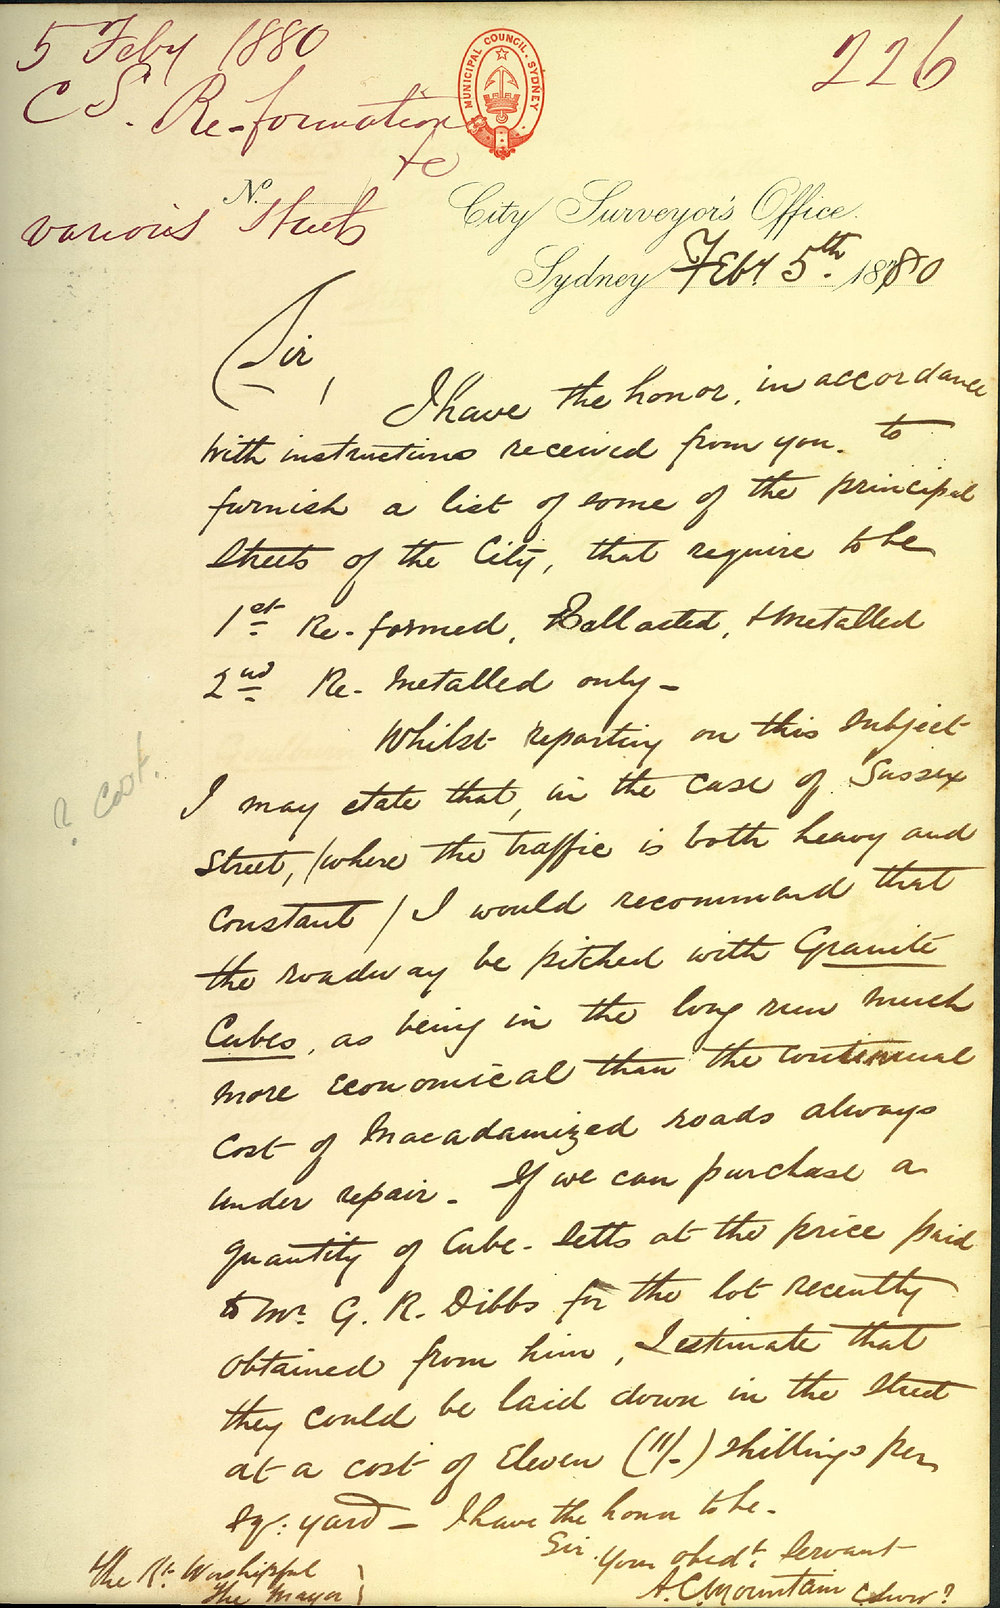 5 Feby 1880
226
MUNICIPAL COUNCIL. SYDNEY
C S. Re-formation
&c
various Streets
No.
City Surveyor's Office.
Sydney Feby 5th. 1880
Sir,
I have the honor, in accordance
with instructions received from you. to
furnish a list of some of the principal
Streets of the City, that require to be
1st Re-formed, Ballasted, & Metalled
2nd Re-Metalled only-
Whilst reporting on this subject
? Cost.
I may state that, in the case of Sussex
Street, (where the traffic is both heavy and
constant) I would recommend that
the roadway be pitched with Granite
Cubes, as being in the long run much
more economical than the continual
cost of Macadamized roads always
under repair - If we can purchase a
quantity of Cube-Setts at the price paid
to Mr. G. R. Dibbs for the lot recently
obtained from him, I estimate that
they could be laid down in the Street
at a cost of Eleven (11/-) shillings per
sq: yard - I have the honor to be-
Sir. Your obedt. Servant
The Rt. Worshipful
The Mayor
A.C. Mountain C Survr